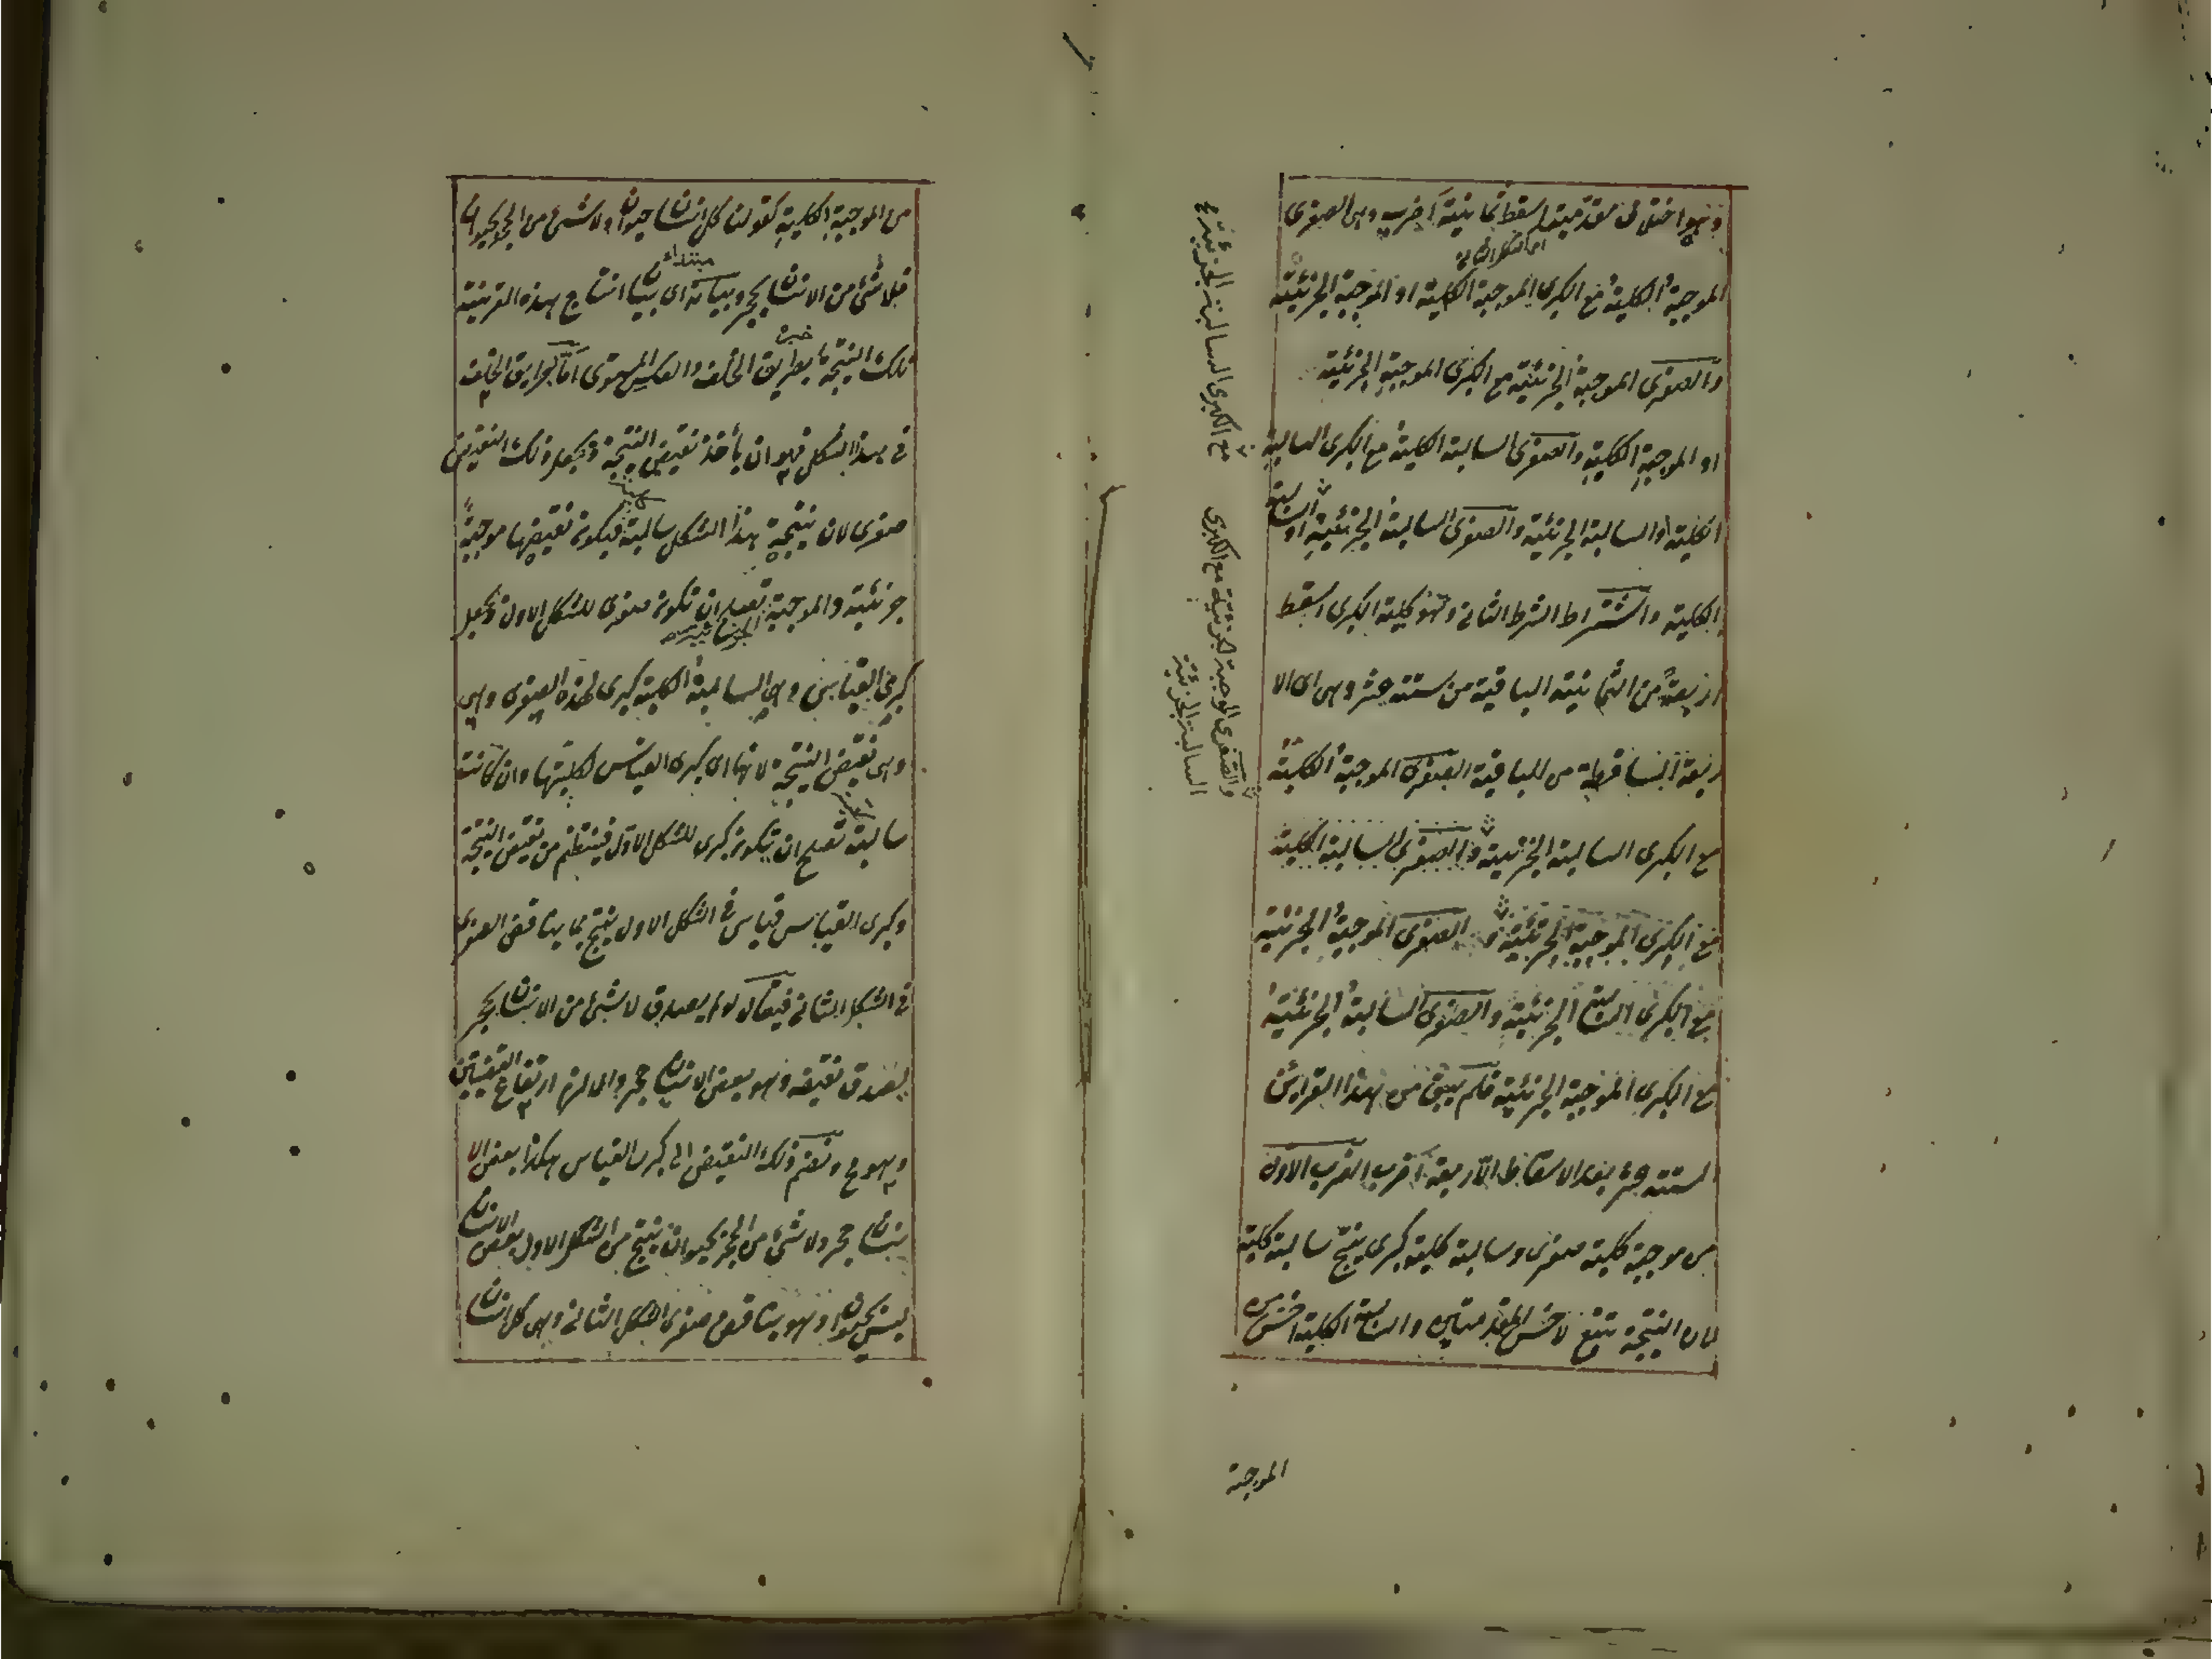 وهو اختلاف مقدمتيه اسقط ثمانية اضرب وهى الصغرى
اى الشكل الثانى
الموجبة الكلية مع الكبرى الموجبة الكلية او الموجبة الجزئية
والصغرى الموجبة الجزئية مع الكبرى الموجبة الجزئية
او الموجبة الكلية والصغرى السالبة الكلية مع الكبرى السالبة
الكلية او السالبة الجزئية والصغرى السالبة الجزئية او السالبة
الكلية واشتراط الشرط الثانى وهو كلية الكبرى اسقط
اربعة من الثمانية الباقية من ستة عشر وهى اى الا
ربعة الساقطة من الباقية الصغرى الموجبة الكلية
مع الكبرى السالبة الجزئية والصغرى السالبة الكلية
مع الكبرى الموجبة الجزئية والصغرى الموجبة الجزئية
مع الكبرى السالبة الجزئية والصغرى السالبة الجزئية
مع الكبرى الموجبة الجزئية فلم يبق من هذا القرائن
الستة عشر بعد الاسقاط الا اربعة اضرب الضرب الاول
من موجبة كلية صغرى وسالبة كلية كبرى ينتج سالبة كلية
لان النتيجة تتبع لاخس المقدمتين والسالبة الكلية اخس من
مع الكبرى السالبة الجزئية
والصغرى الموجبة الجزئية مع الكبرى
السالبة الجزئية
الموجبة
من الموجبة الكلية كقولنا كل انسان حيوان ولا شئ من الحجر بحيوان
فلا شئ من الانسان بحجر وبيانه اى بيان انتاج هذه القرينة
مبتداء
تلك النتيجة بطريق الخلف والعكس المستوى اما طريق الخلف
خبره
فى هذا الشكل فهو ان يأخذ نقيض النتيجة ويجعل ذلك النقيض
صغرى لان نتيجة هذا الشكل سالبة فيكون نقيضها موجبة
جزئية والموجبة تصلح ان تكون صغرى للشكل الاول ويجعل
الجزئية
كبرى القياس وهى السالبة الكلية كبرى لهذه الصغرى وهى
وهى نقيض النتيجة لانها اى كبرى القياس لكليتها وان كانت
سالبة تصلح ان تكون كبرى للشكل الاول فينتظم من نقيض النتيجة
وكبرى القياس قياس فى الشكل الاول ينتج بما يناقض الصغرى
فى الشكل الثانى فيقال لو لم يصدق لا شئ من الانسان بحجر
لصدق نقيضه وهو بعض الانسان حجر والا لزم ارتفاع النقيضين
وهو مح ونضم ذلك النقيض الى كبرى القياس هكذا بعض الا
نسان حجر ولا شئ من الحجر بحيوان ينتج من الشكل الاول بعض الانسان
ليس بحيوان وهو يناقض صغرى الشكل الثانى وهى كل انسان